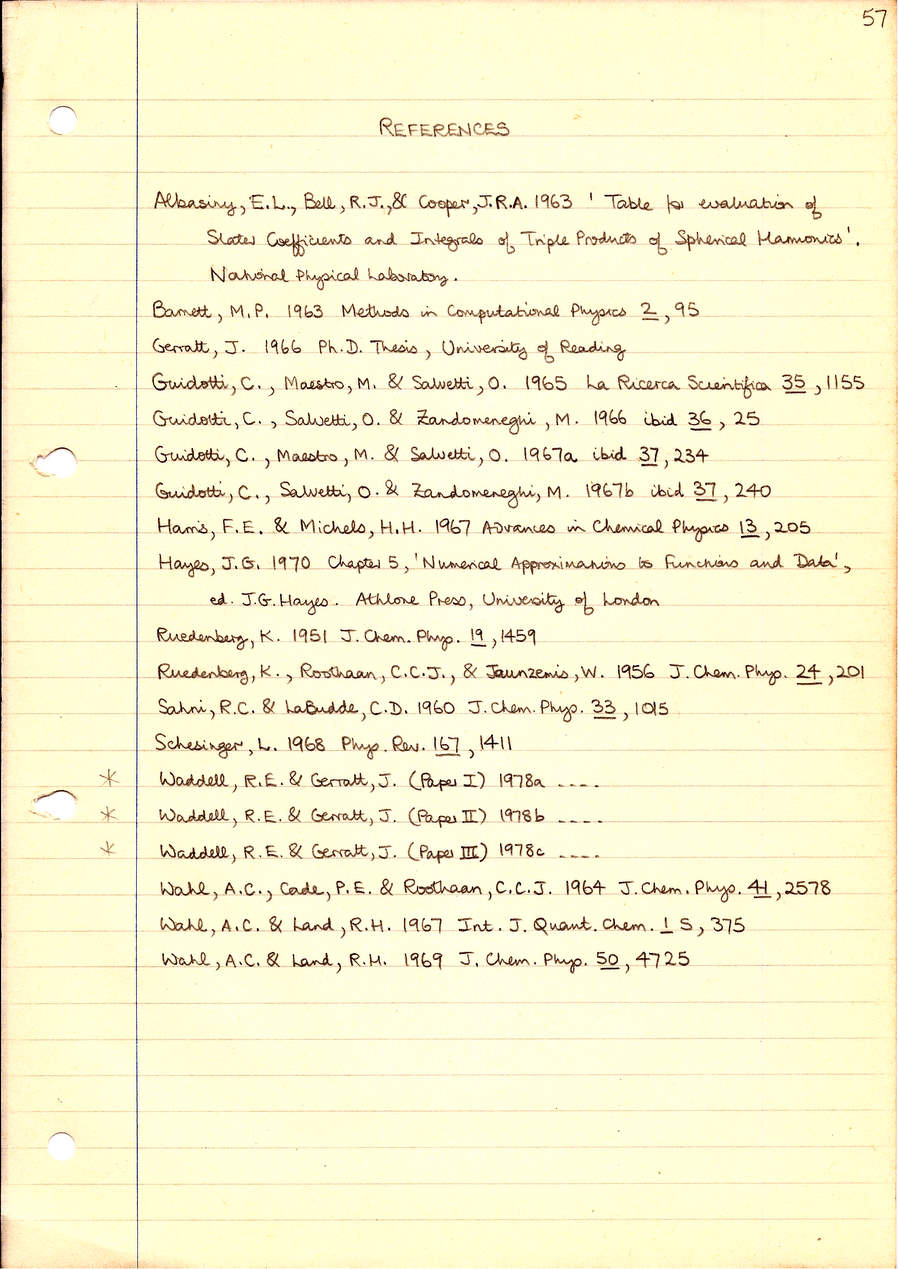 57
REFERENCES
Albasiny, E.L., Bell, R.J., & Cooper, J.R.A. 1963 ' Table for evaluation of
Slater Coefficients and Integrals of Triple Products of Spherical Harmonics'.
National Physical Laboratory.
Barnett, M.P. 1963 Methods in Computational Physics 2, 95
Gerratt, J. 1966 Ph.D. Thesis, University of Reading
Guidotti, C., Maestro, M. & Salvetti, O. 1965 La Ricerca Scientifica 35, 1155
Guidotti, C., Salvetti, O. & Zandomeneghi, M. 1966 ibid 36, 25
Guidotti, C., Maestro, M. & Salvetti, O. 1967a ibid 37, 234
Guidotti, C., Salvetti, O. & Zandomeneghi, M. 1967b ibid 37, 240
Harris, F.E. & Michels, H.H. 1967 Advances in Chemical Physics 13, 205
Hayes, J.G. 1970 Chapter 5, 'Numerical Approximations to Functions and Data',
ed. J.G. Hayes. Athlone Press, University of London
Ruedenberg, K. 1951 J. Chem. Phys. 19, 1459
Ruedenberg, K., Roothaan, C.C.J., & Jaunzemis, W. 1956 J. Chem. Phys. 24, 201
Sahni, R.C. & LaBudde, C.D. 1960 J. Chem. Phys. 33, 1015
Schesinger, L. 1968 Phys. Rev. 167, 1411
* Waddell, R.E. & Gerratt, J. (Paper I) 1978a ----
* Waddell, R.E. & Gerratt, J. (Paper II) 1978b ----
* Waddell, R.E. & Gerratt, J. (Paper III) 1978c ----
Wahl, A.C., Cade, P.E. & Roothaan, C.C.J. 1964 J. Chem. Phys. 41, 2578
Wahl, A.C. & Land, R.H. 1967 Int. J. Quant. Chem. 1 S, 375
Wahl, A.C. & Land, R.H. 1969 J. Chem. Phys. 50, 4725